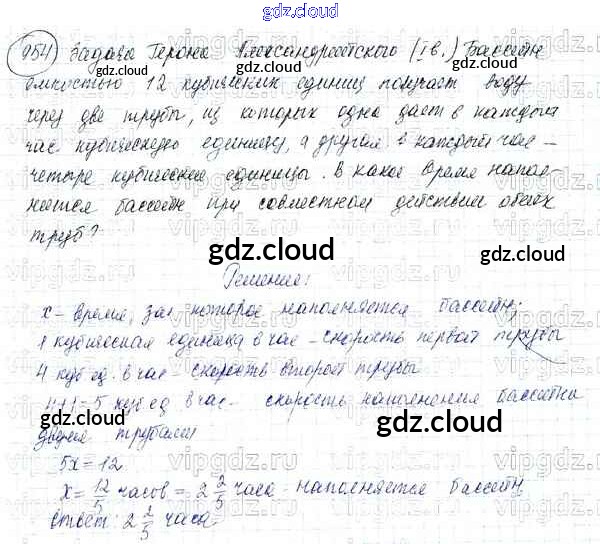 gdz.cloud
954) Задача Герона Александрийского (I в.) Бассейн
емкостью 12 кубических единиц получает воду
через две трубы, из которых одна дает в каждый
час кубическую единицу, а другая в каждый час –
четыре кубические единицы. В какое время напол-
няется бассейн при совместном действии обеих
труб?
Решение:
x – время, за которое наполняется бассейн;
1 кубическая единица в час – скорость первой трубы
4 куб ед. в час скорость второй трубы
4+1=5 куб ед в час – скорость наполнения бассейна
двумя трубами
5x = 12
x = 12/5 часов = 2 2/5 часа – наполняется бассейн
ответ: 2 2/5 часа.
gdz.cloud